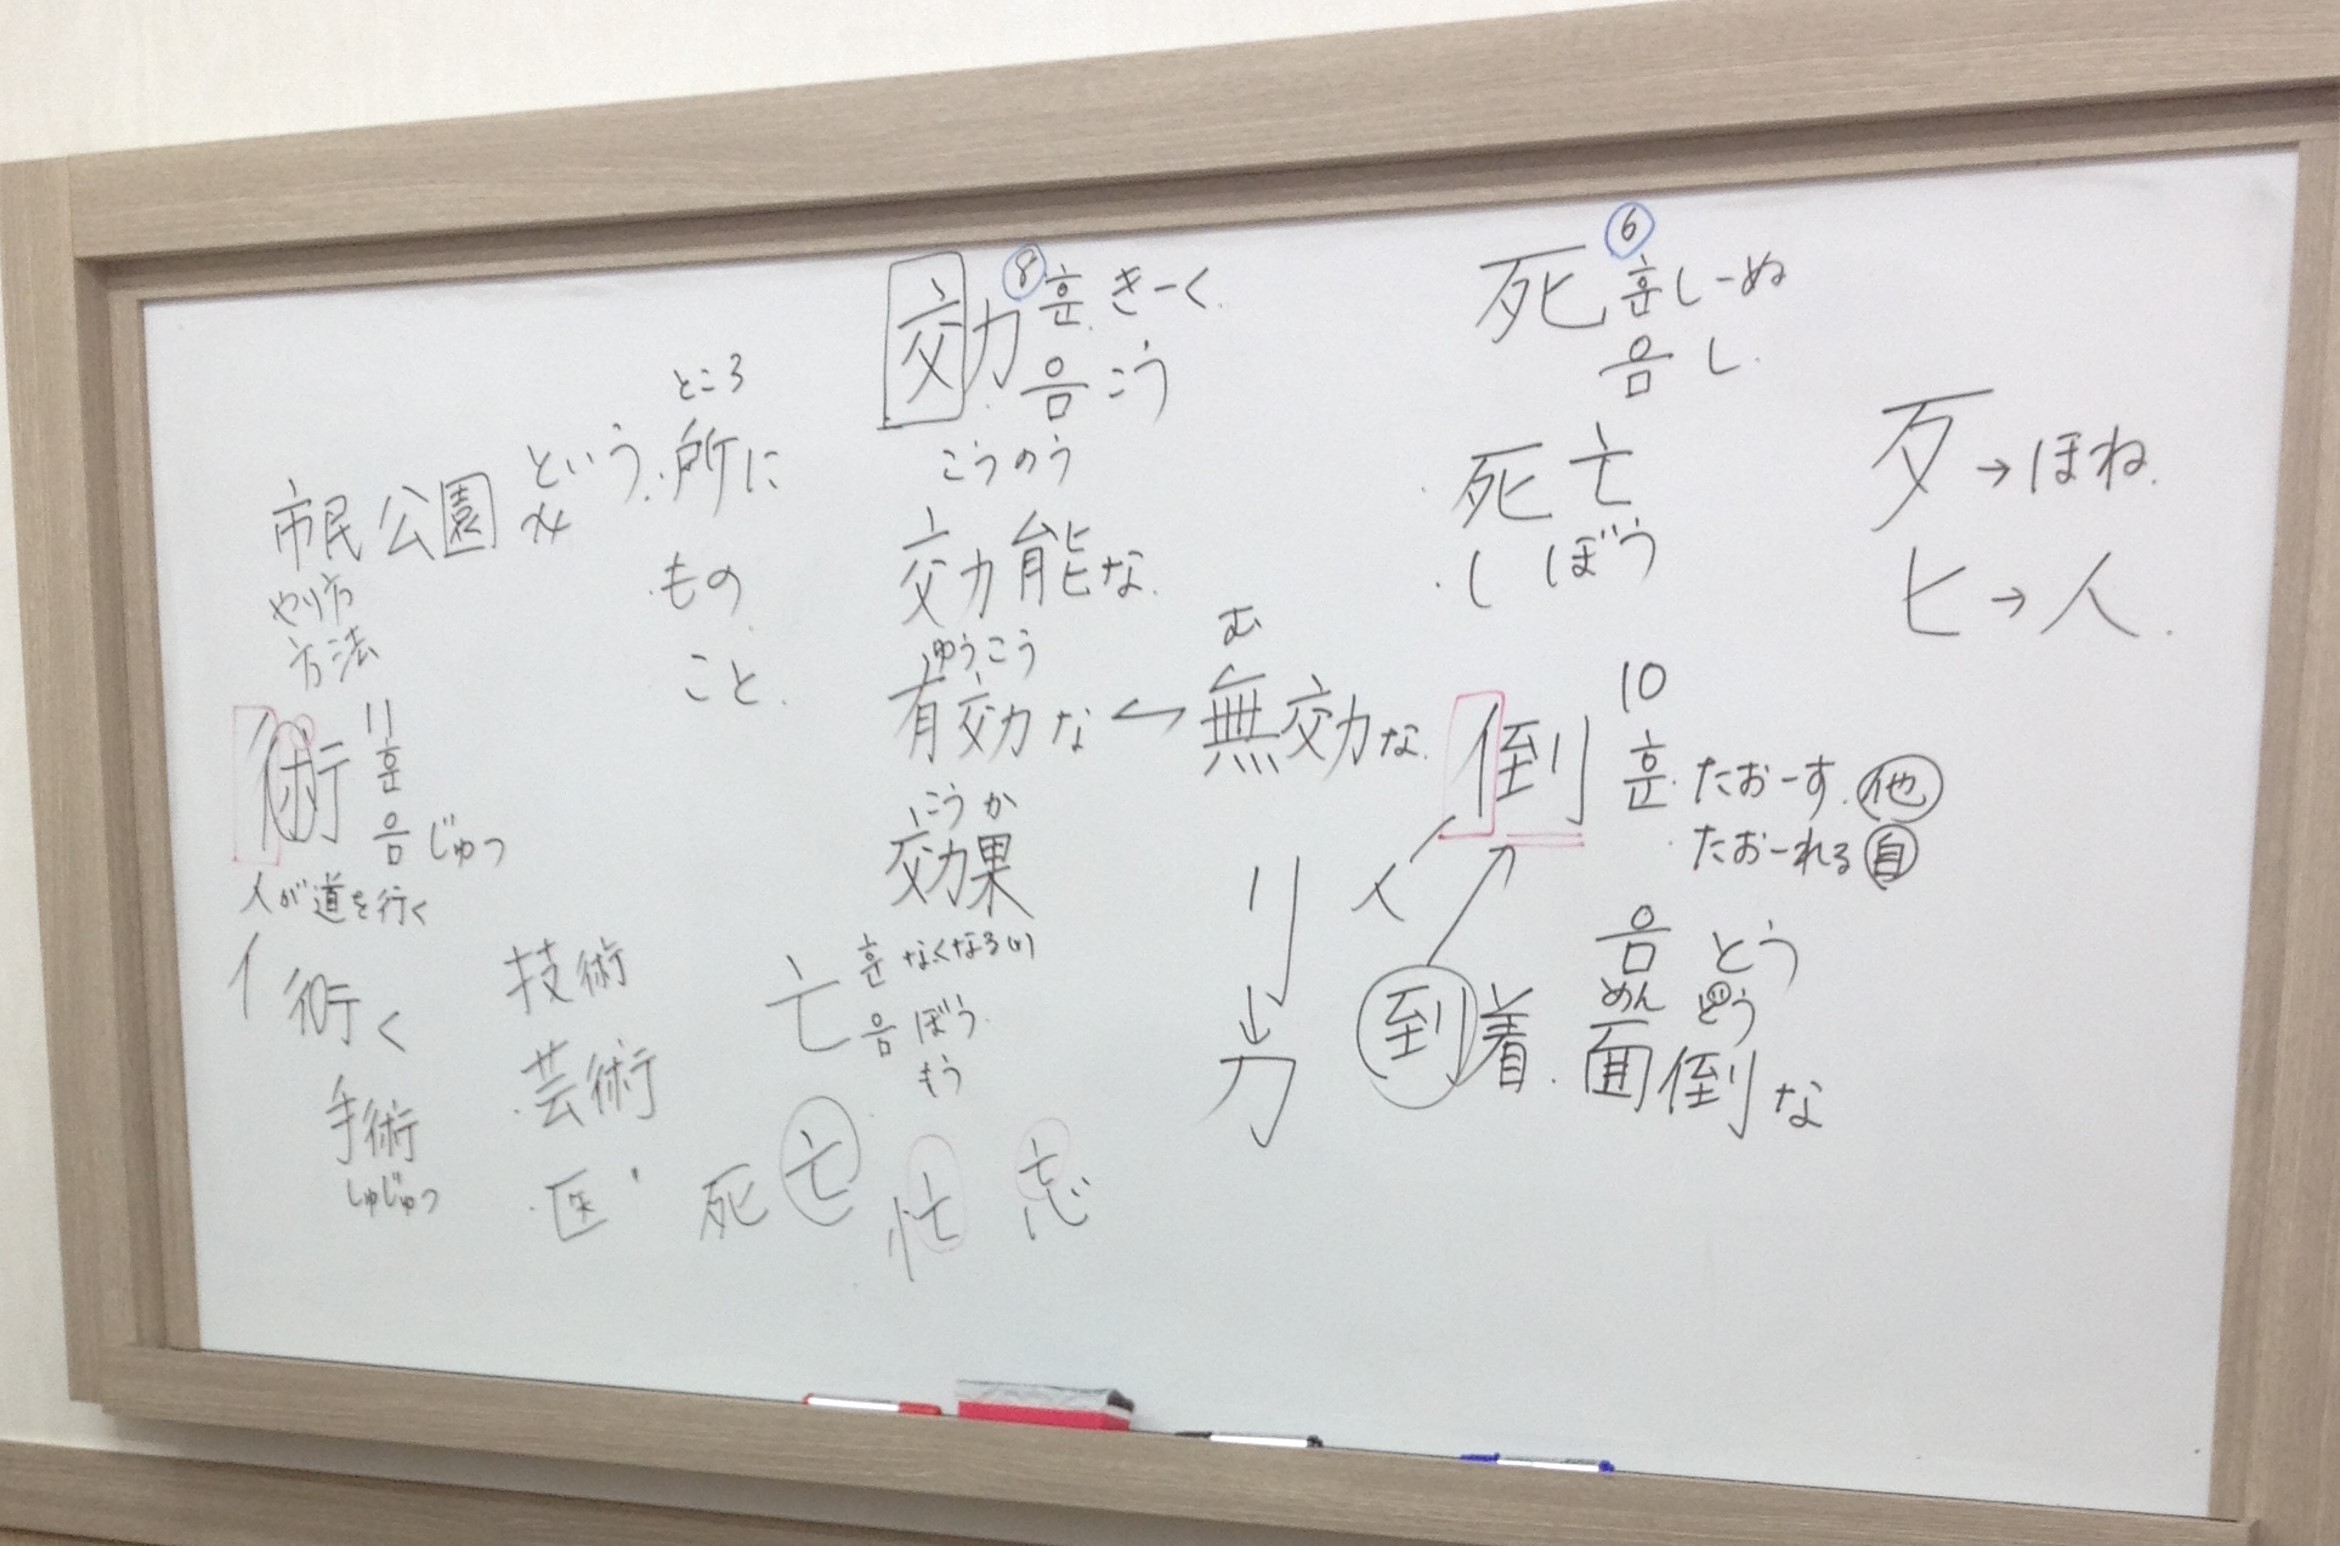 ところ
市民公園という所に
もの
こと
やり方
方法
術 11
훈
음 じゅつ
人が道を行く
く
手術
しゅじゅつ
技術
芸術
医〃
効 ⑧ 훈 きーく
음 こう
こうのう
効能な
ゆうこう む
有効な ← 無効な
こうか
効果
亡 훈 なくなる(い)
음 ぼう
もう
死亡 忙 忘
死 ⑥ 훈 しーぬ
음 し
死亡
しぼう
歹→ほね
ヒ→人
倒 10
훈 たおーす 他
たおーれる 自
人
音 とう
リ
↓
力
到着
めんどう
面倒な